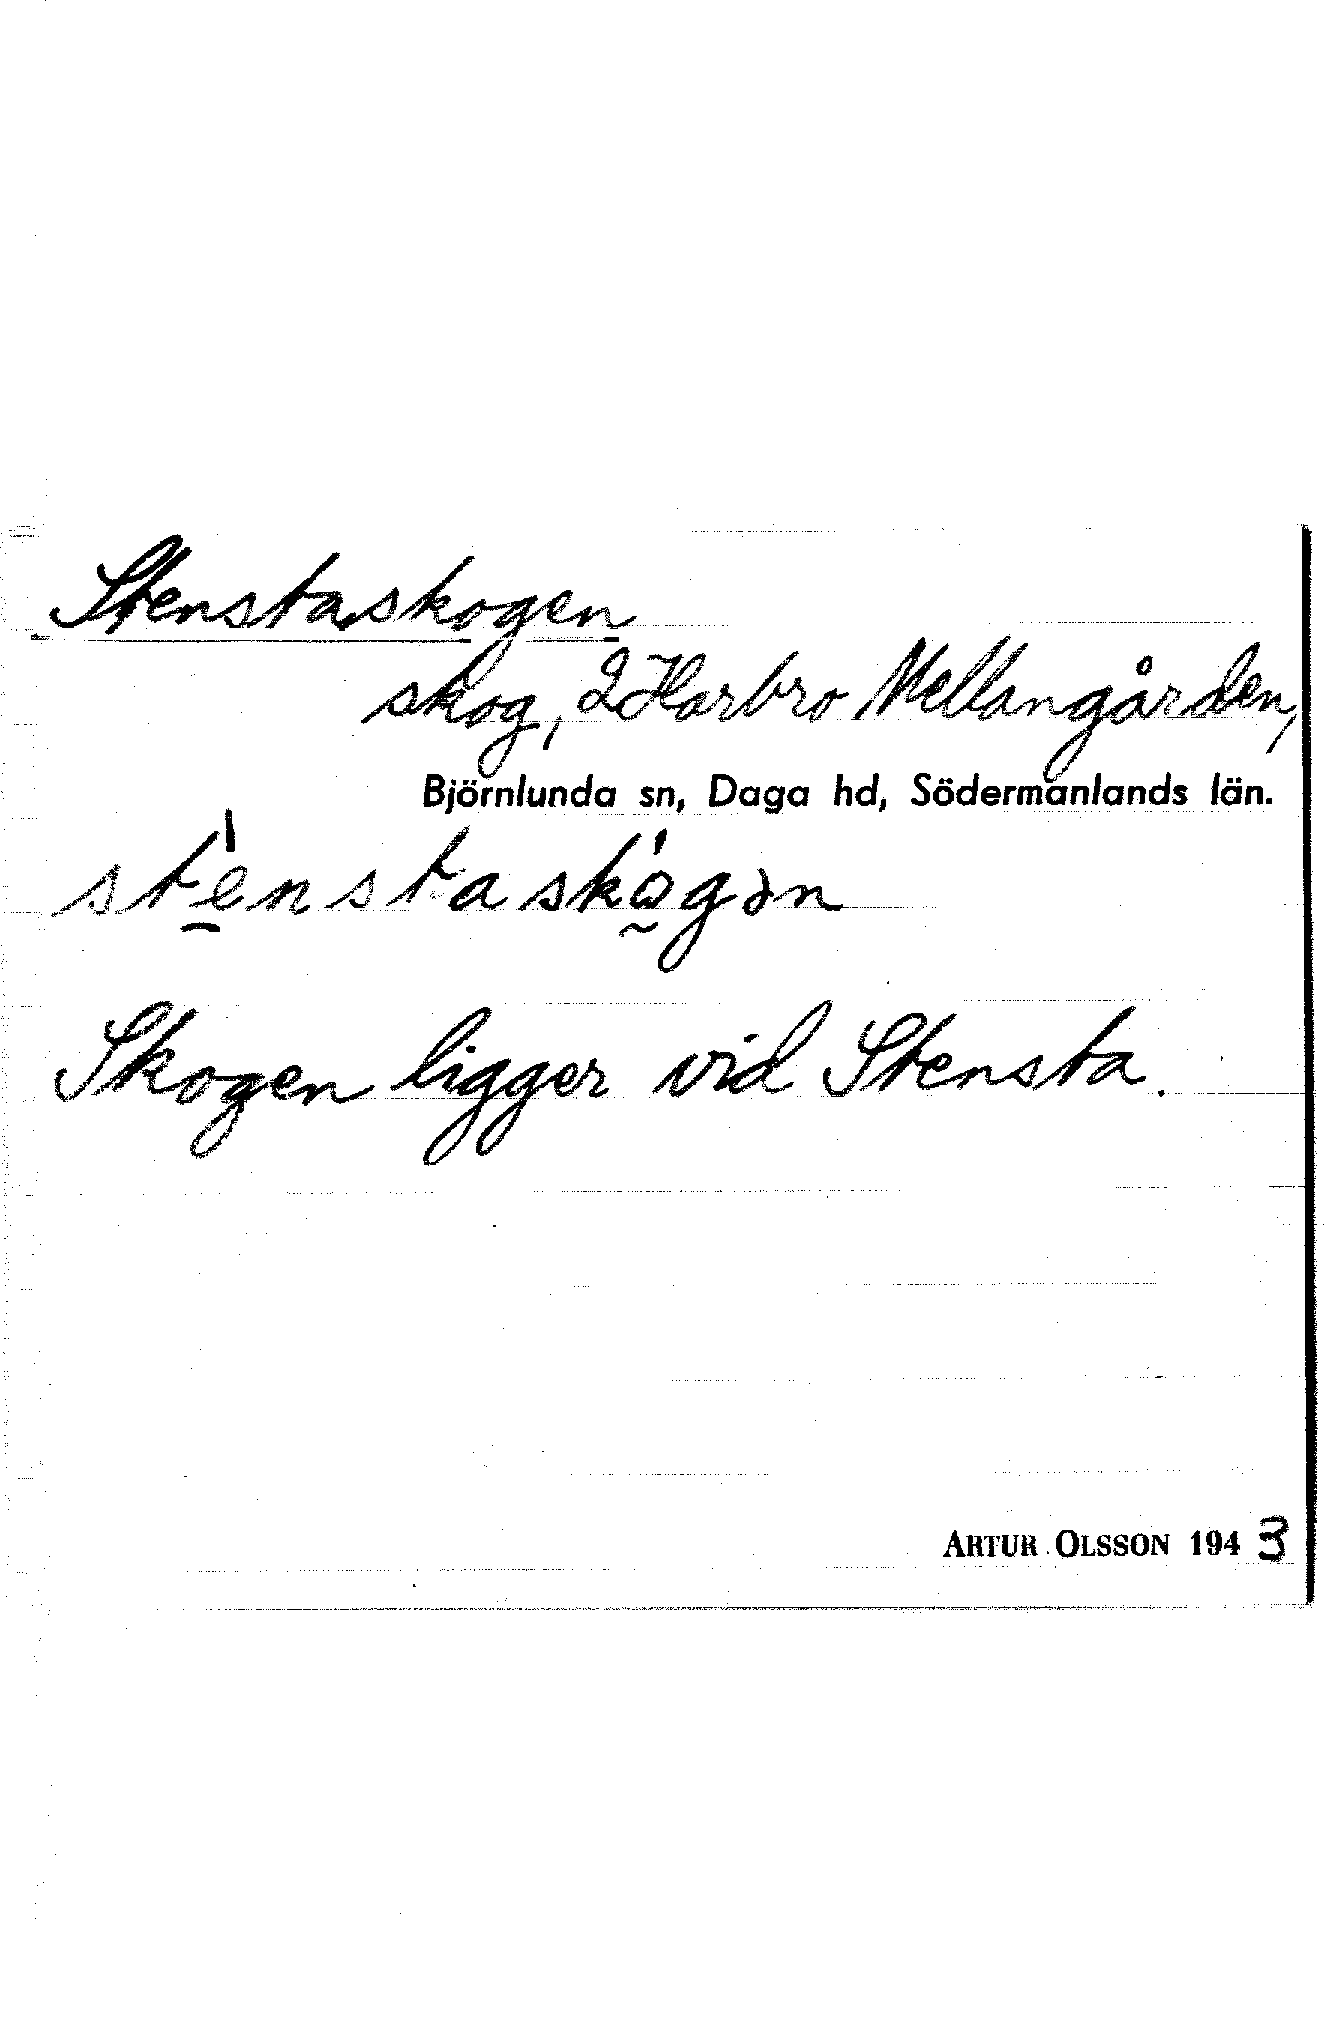 Stenstaskogen
skog, 2 Harbro Mellangården,
Björnlunda sn, Daga hd, Södermanlands län.
stènstaskògən
Skogen ligger vid Stensta.
ARTUR OLSSON 1943